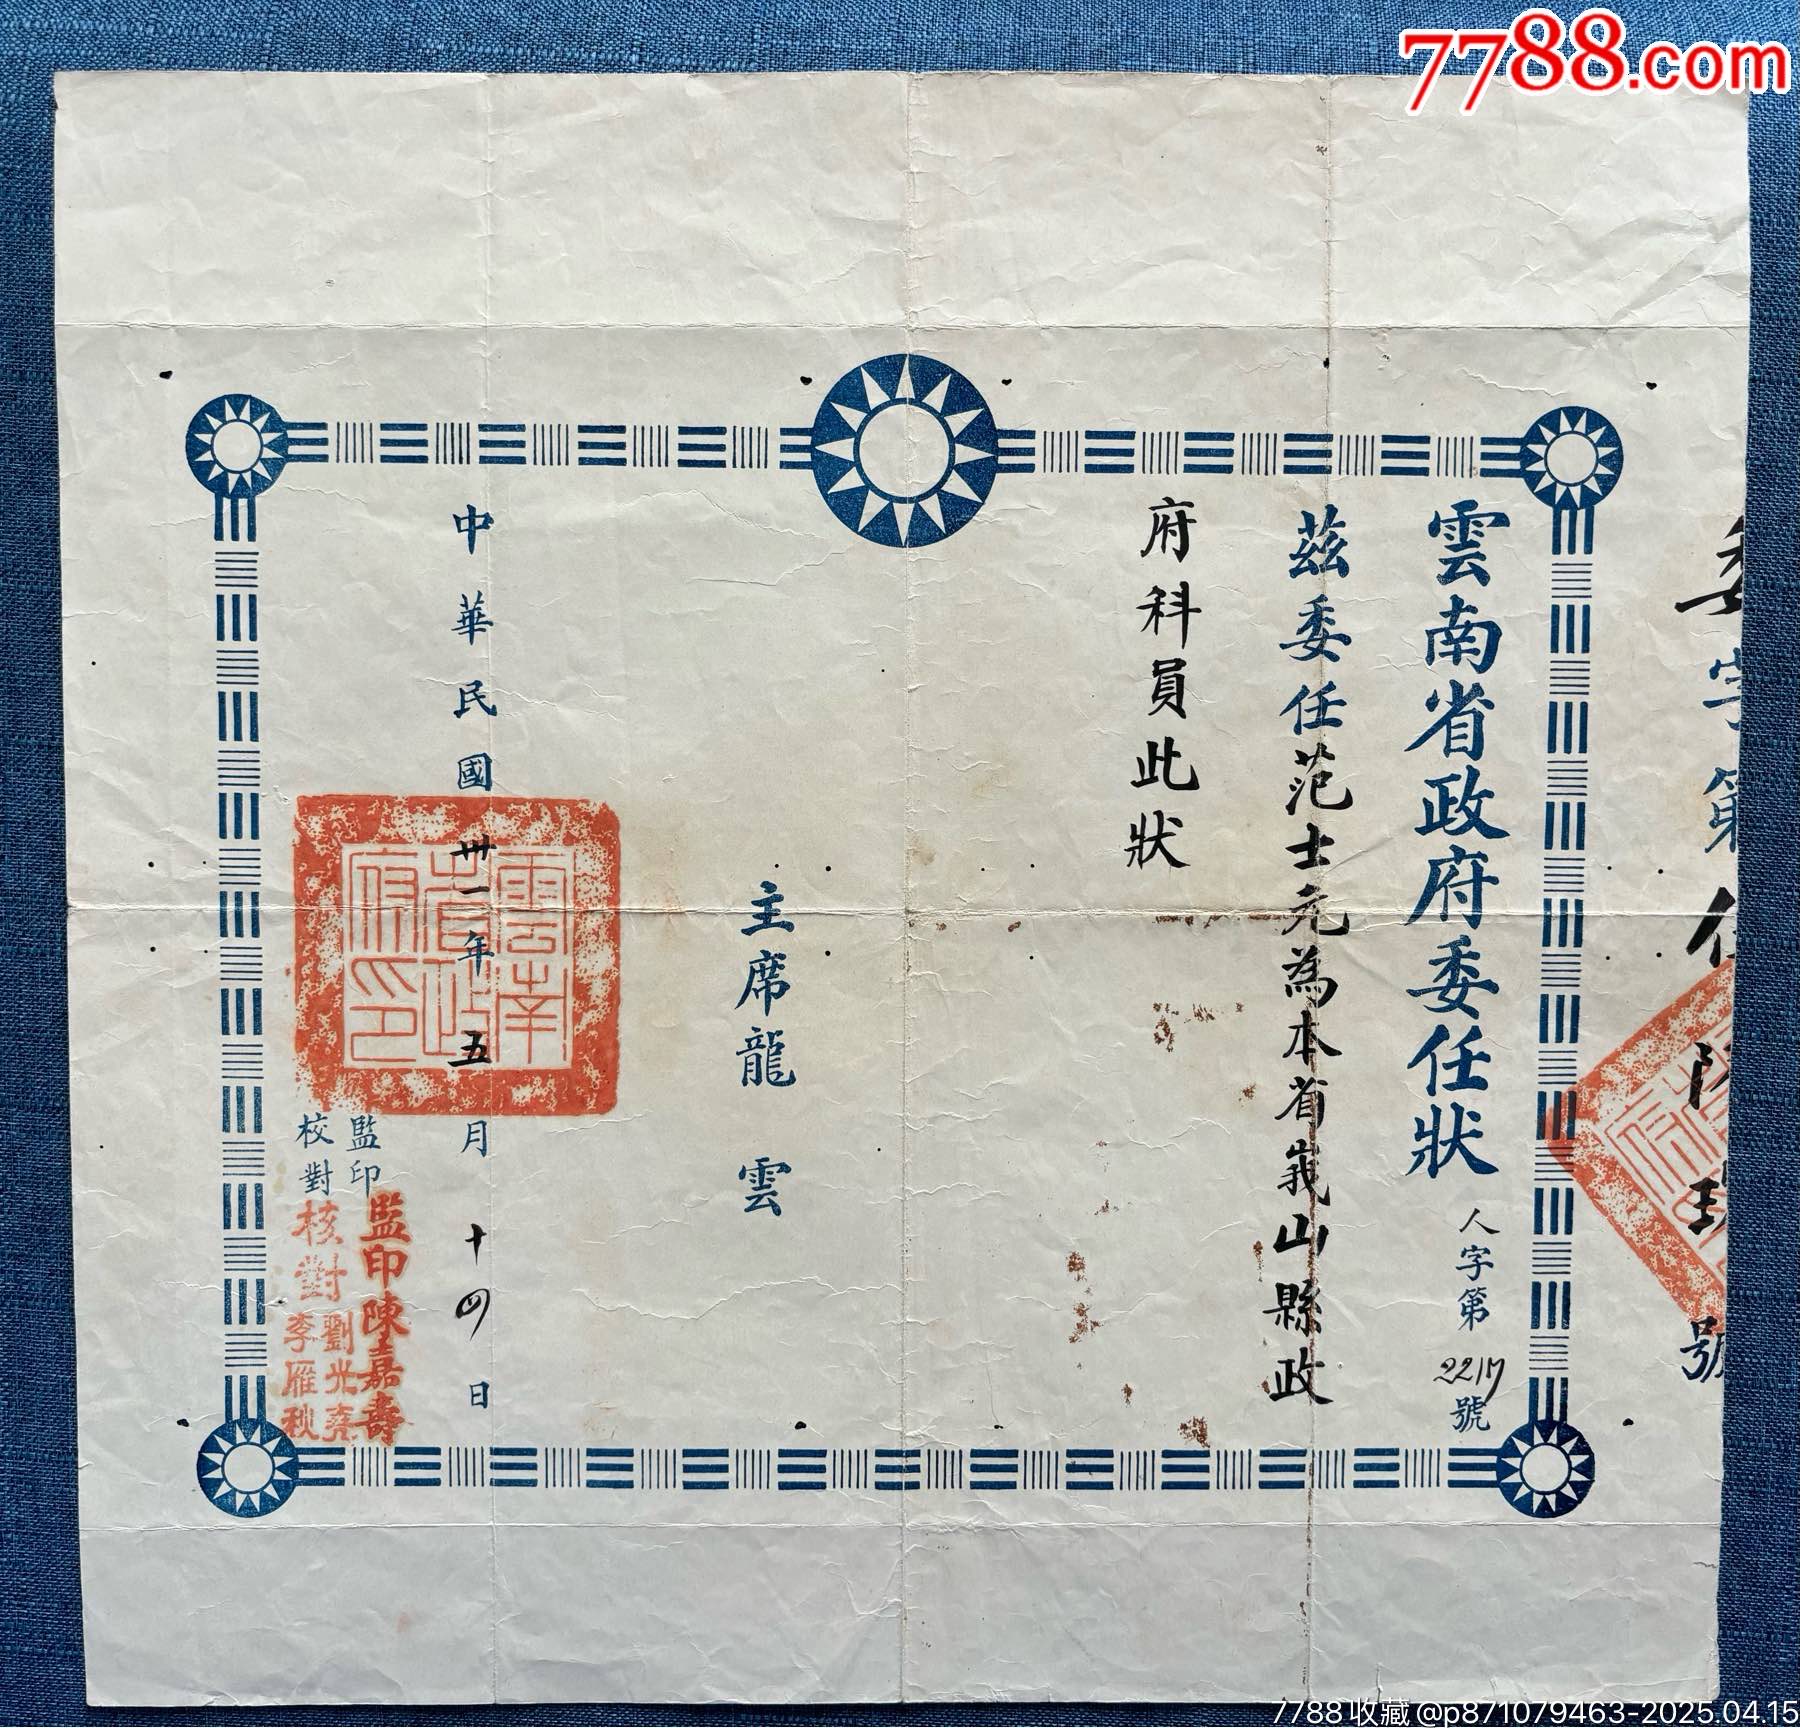 7788.com
委字第
號
雲南省政府委任狀 人字第2217號
茲委任范士元為本省峩山縣政
府科員此狀
主席龍雲
中華民國卅一年五月十四日
雲南省政府印
監印 監印陳嘉壽
校對 核對劉光彝
李雁秋
7788收藏@p871079463-2025.04.15